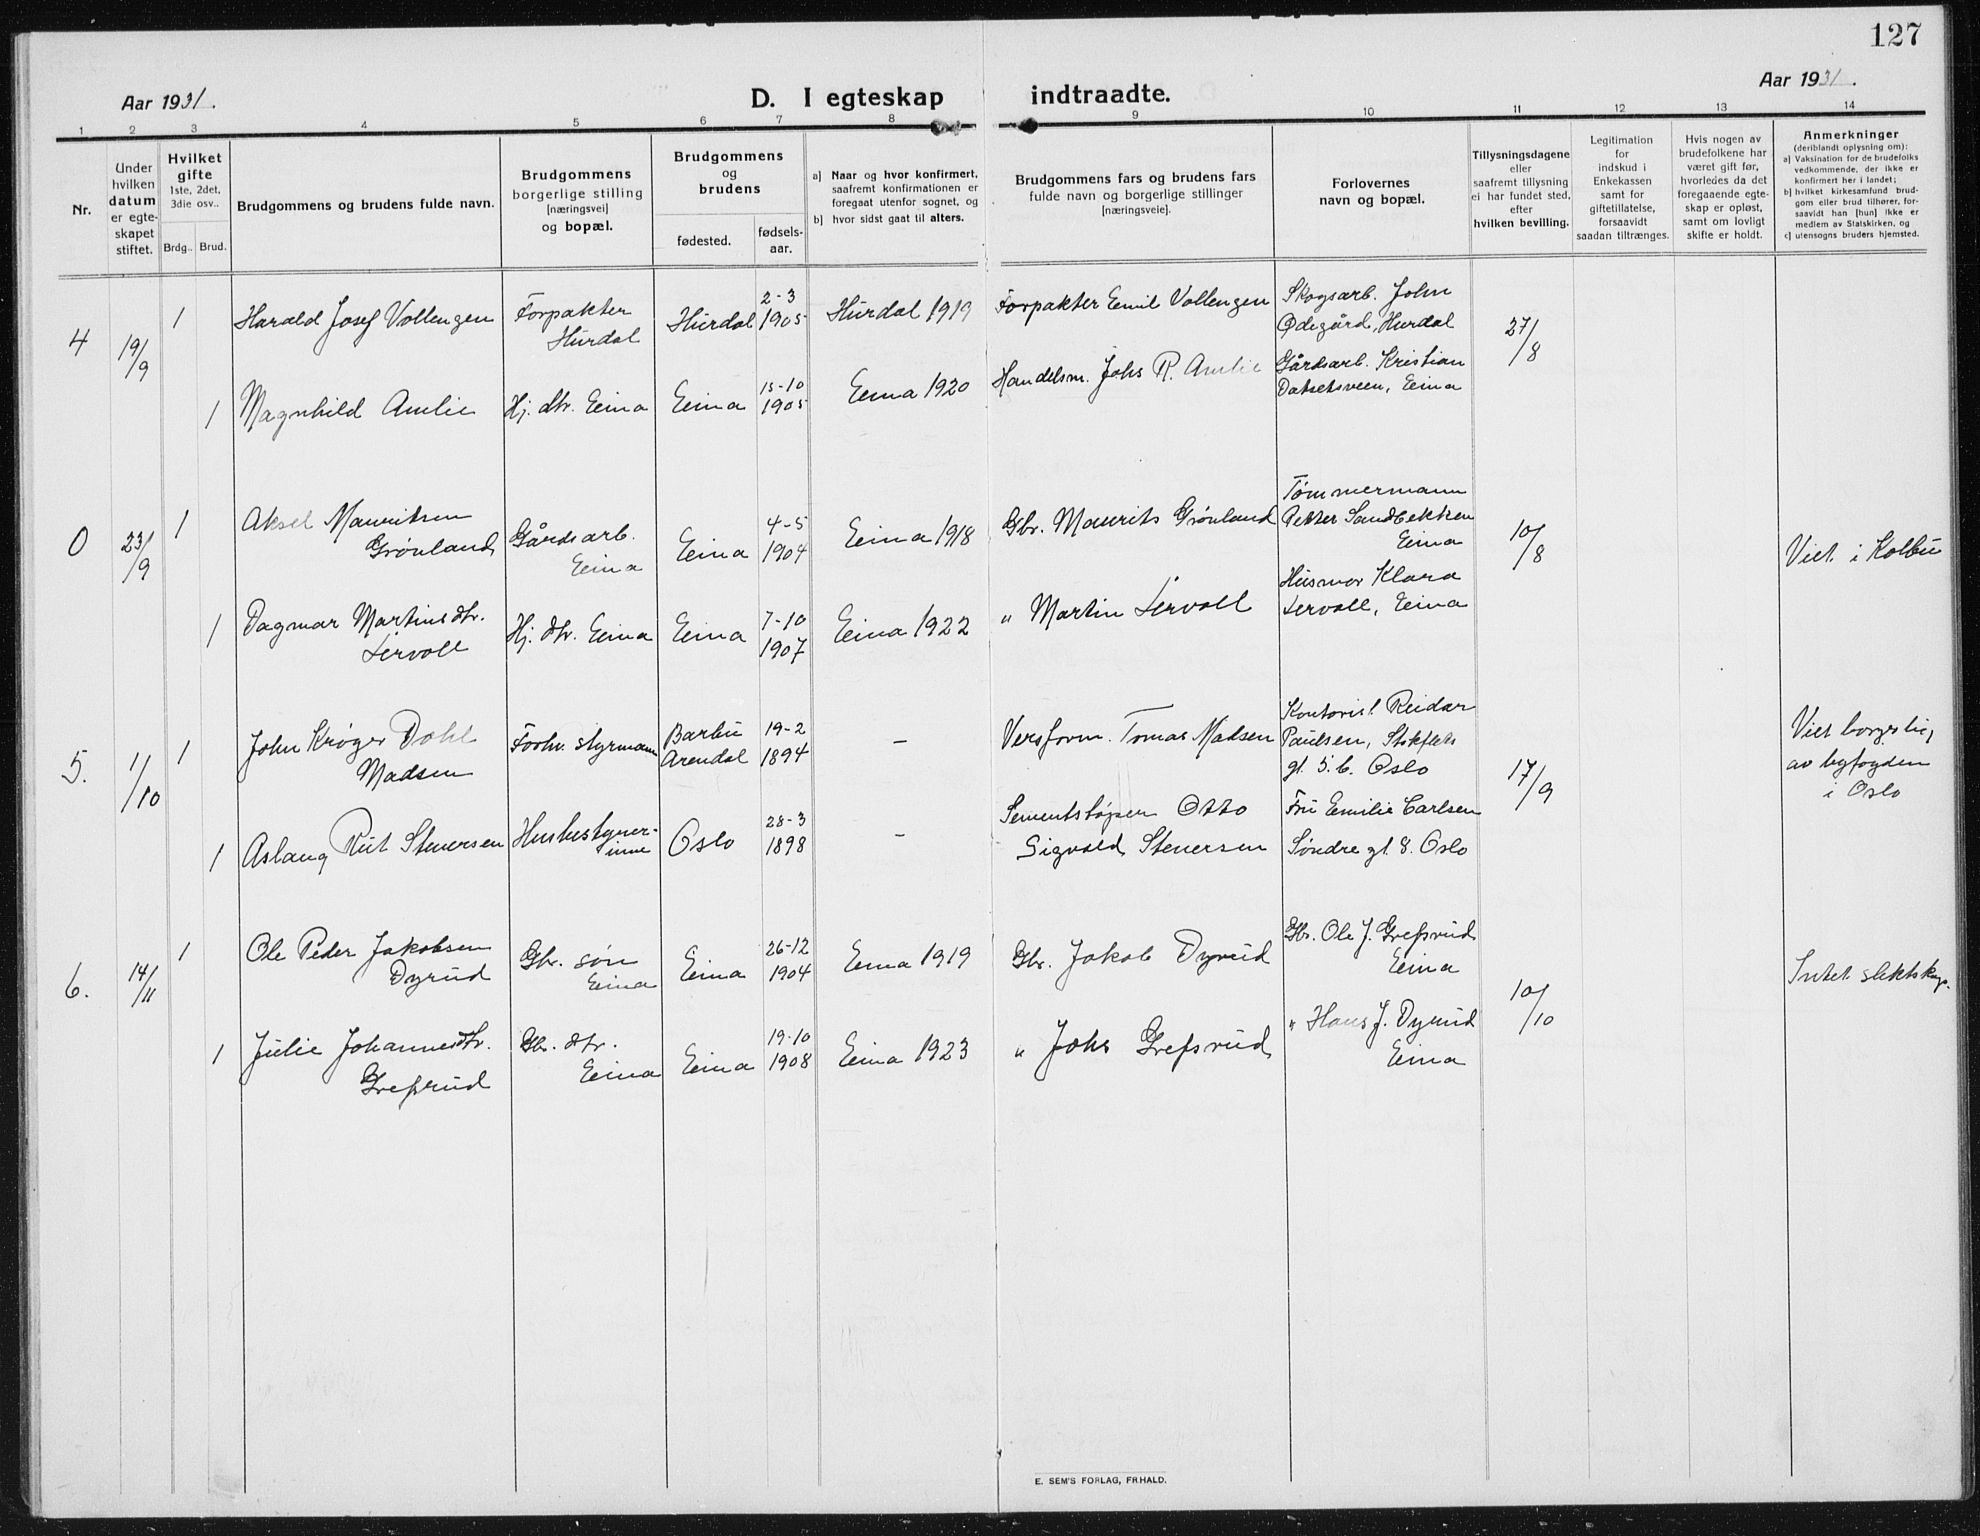 127
Aar 1931.
D. I egteskap indtraadte.
Aar 1931.
1 2 3 4 5 6 7 8 9 10 11 12 13 14
Nr.
Under hvilken datum er egteskapet stiftet.
Hvilket gifte 1ste, 2det, 3die osv..
Brdg.. Brud.
Brudgommens og brudens fulde navn.
Brudgommens borgerlige stilling [næringsvei] og bopæl.
Brudgommens og brudens
fødested. fødselsaar.
a] Naar og hvor konfirmert, saafremt konfirmationen er foregaat utenfor sognet, og
b] hvor sidst gaat til alters.
Brudgommens fars og brudens fars fulde navn og borgerlige stillinger [næringsveie].
Forlovernes navn og bopæl.
Tillysningsdagene eller saafremt tillysning ei har fundet sted, efter hvilken bevilling.
Legitimation for indskud i Enkekassen samt for giftetillatelse, forsaavidt saadan tiltrænges.
Hvis nogen av brudefolkene har været gift før, hvorledes da det foregaaende egteskap er opløst, samt om lovligt skifte er holdt.
Anmerkninger (deriblandt oplysning om):
a] Vaksination for de brudefolks vedkommende, der ikke er konfirmert her i landet;
b] hvilket kirkesamfund brudgom eller brud tilhører, forsaavidt han [hun] ikke er medlem av Statskirken, og
c] utensogns bruders hjemsted.
4 19/9 1 Harald Josef Vollengen Forpakter Hurdal Hurdal 2-3 1905 Hurdal 1919 Forpakter Emil Vollengen Skogsarb. John Ødegård, Hurdal 27/8
1 Magnhild Amlie Hj. dtr. Eina Eina 15-10 1905 Eina 1920 Handelsm. Johs R. Amlie Gårdsarb. Kristian Dalsetsveen, Eina
0 23/9 1 Aksel Mauritsen Grønland Gårdsarb. Eina Eina 4-5 1904 Eina 1918 Gbr. Maurits Grønland Tømmermann Petter Sandbekken Eina 10/8 Viet i Kolbu
1 Dagmar Martinsdtr. Lervoll Hj. dtr. Eina Eina 7-10 1907 Eina 1922 " Martin Lervoll Husmor Klara Lervoll, Eina
5. 1/10 1 John Krøger Dahl Madsen Forhv. styrmann Barbu Arendal 19-2 1894 – Tomas Madsen Kontorist Reidar Paulsen, gt. 5.b. Oslo 17/9 Viet borgerlig av byfogden i Oslo
1 Aslaug Rut Stenersen Husbestyrerinne Oslo 28-3 1898 – Sementstøper Otto Sigvald Stenersen Fru Emilie Carlsen Søndre gt. 8. Oslo
6. 14/11 1 Ole Peder Jakobsen Dyrud Gbr. søn Eina Eina 26-12 1904 Eina 1919 Gbr. Jakob Dyrud Gbr. Ole J. Grefsrud Eina 10/10 Intet slektskap.
1 Julie Johannesdtr. Grefsrud Gbr. dtr. Eina Eina 19-10 1908 Eina 1923 " Johs Grefsrud " Hans J. Dyrud Eina
E. SEM'S FORLAG, FR.HALD.